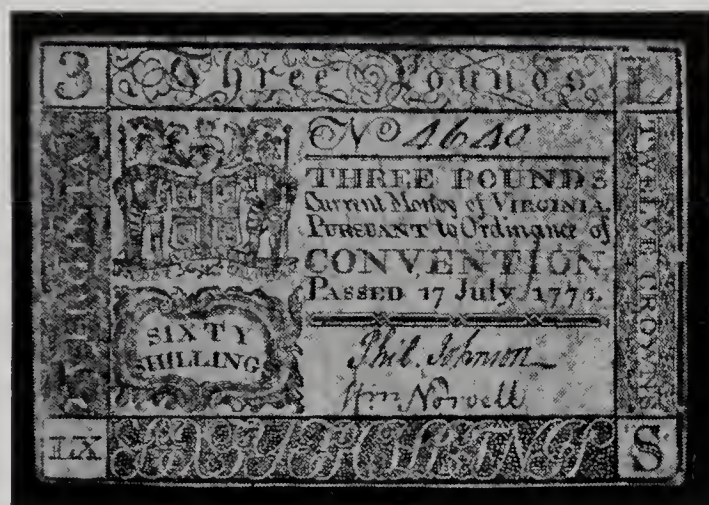 3 Three Pounds L
VIRGINIA
No 4640
THREE POUNDS
Current Money of VIRGINIA
PURSUANT to Ordinance of
CONVENTION
PASSED 17 July 1775.
SIXTY
SHILLINGS
Phil. Johnson
Wm Norvell
TWELVE CROWNS
LX SIXTY SHILLINGS S